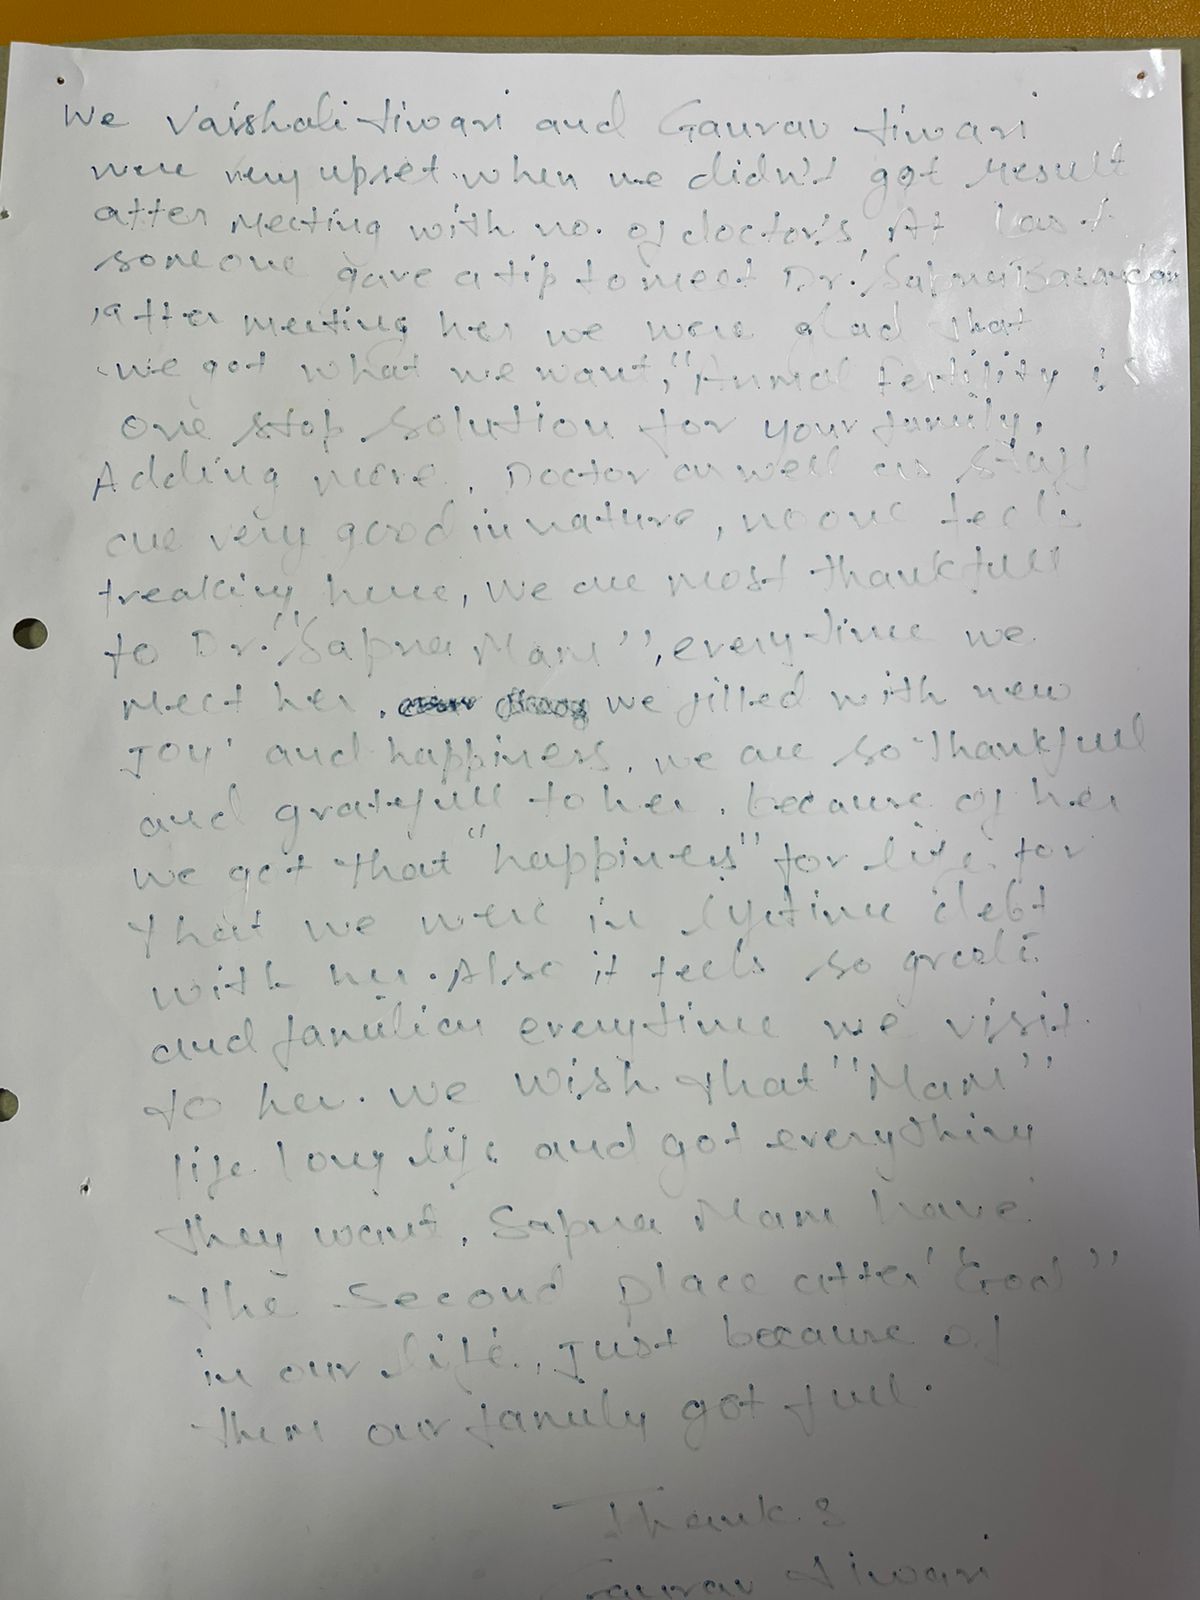 We Vaishali tiwari and Gaurav tiwari
were very upset when we didn't got result
after meeting with no. of doctor's, At last
someone gave a tip to meet Dr. "Sapna
After meeting her we were glad that
we got what we want, "Anmol Fertility is
one stop solution for your family.
Adding more, Doctor as well as staff
are very good in nature, no one feels
freaking here, We are most thankfull
to Dr. "Sapna Mam", everytime we
meet her, we filled with new
Joy and happiness, we are so thankfull
and gratefull to her, because of her
we got that "happiness" for life, for
that we were in lifetime debt
with her. Also it feels so great
and familiar everytime we visit
to her. We wish that "Mam"
life long life and got everything
they want, Sapna Mam have
the second place after "God"
in our life, Just because of
them our family got full.
Thanks
Gaurav tiwari